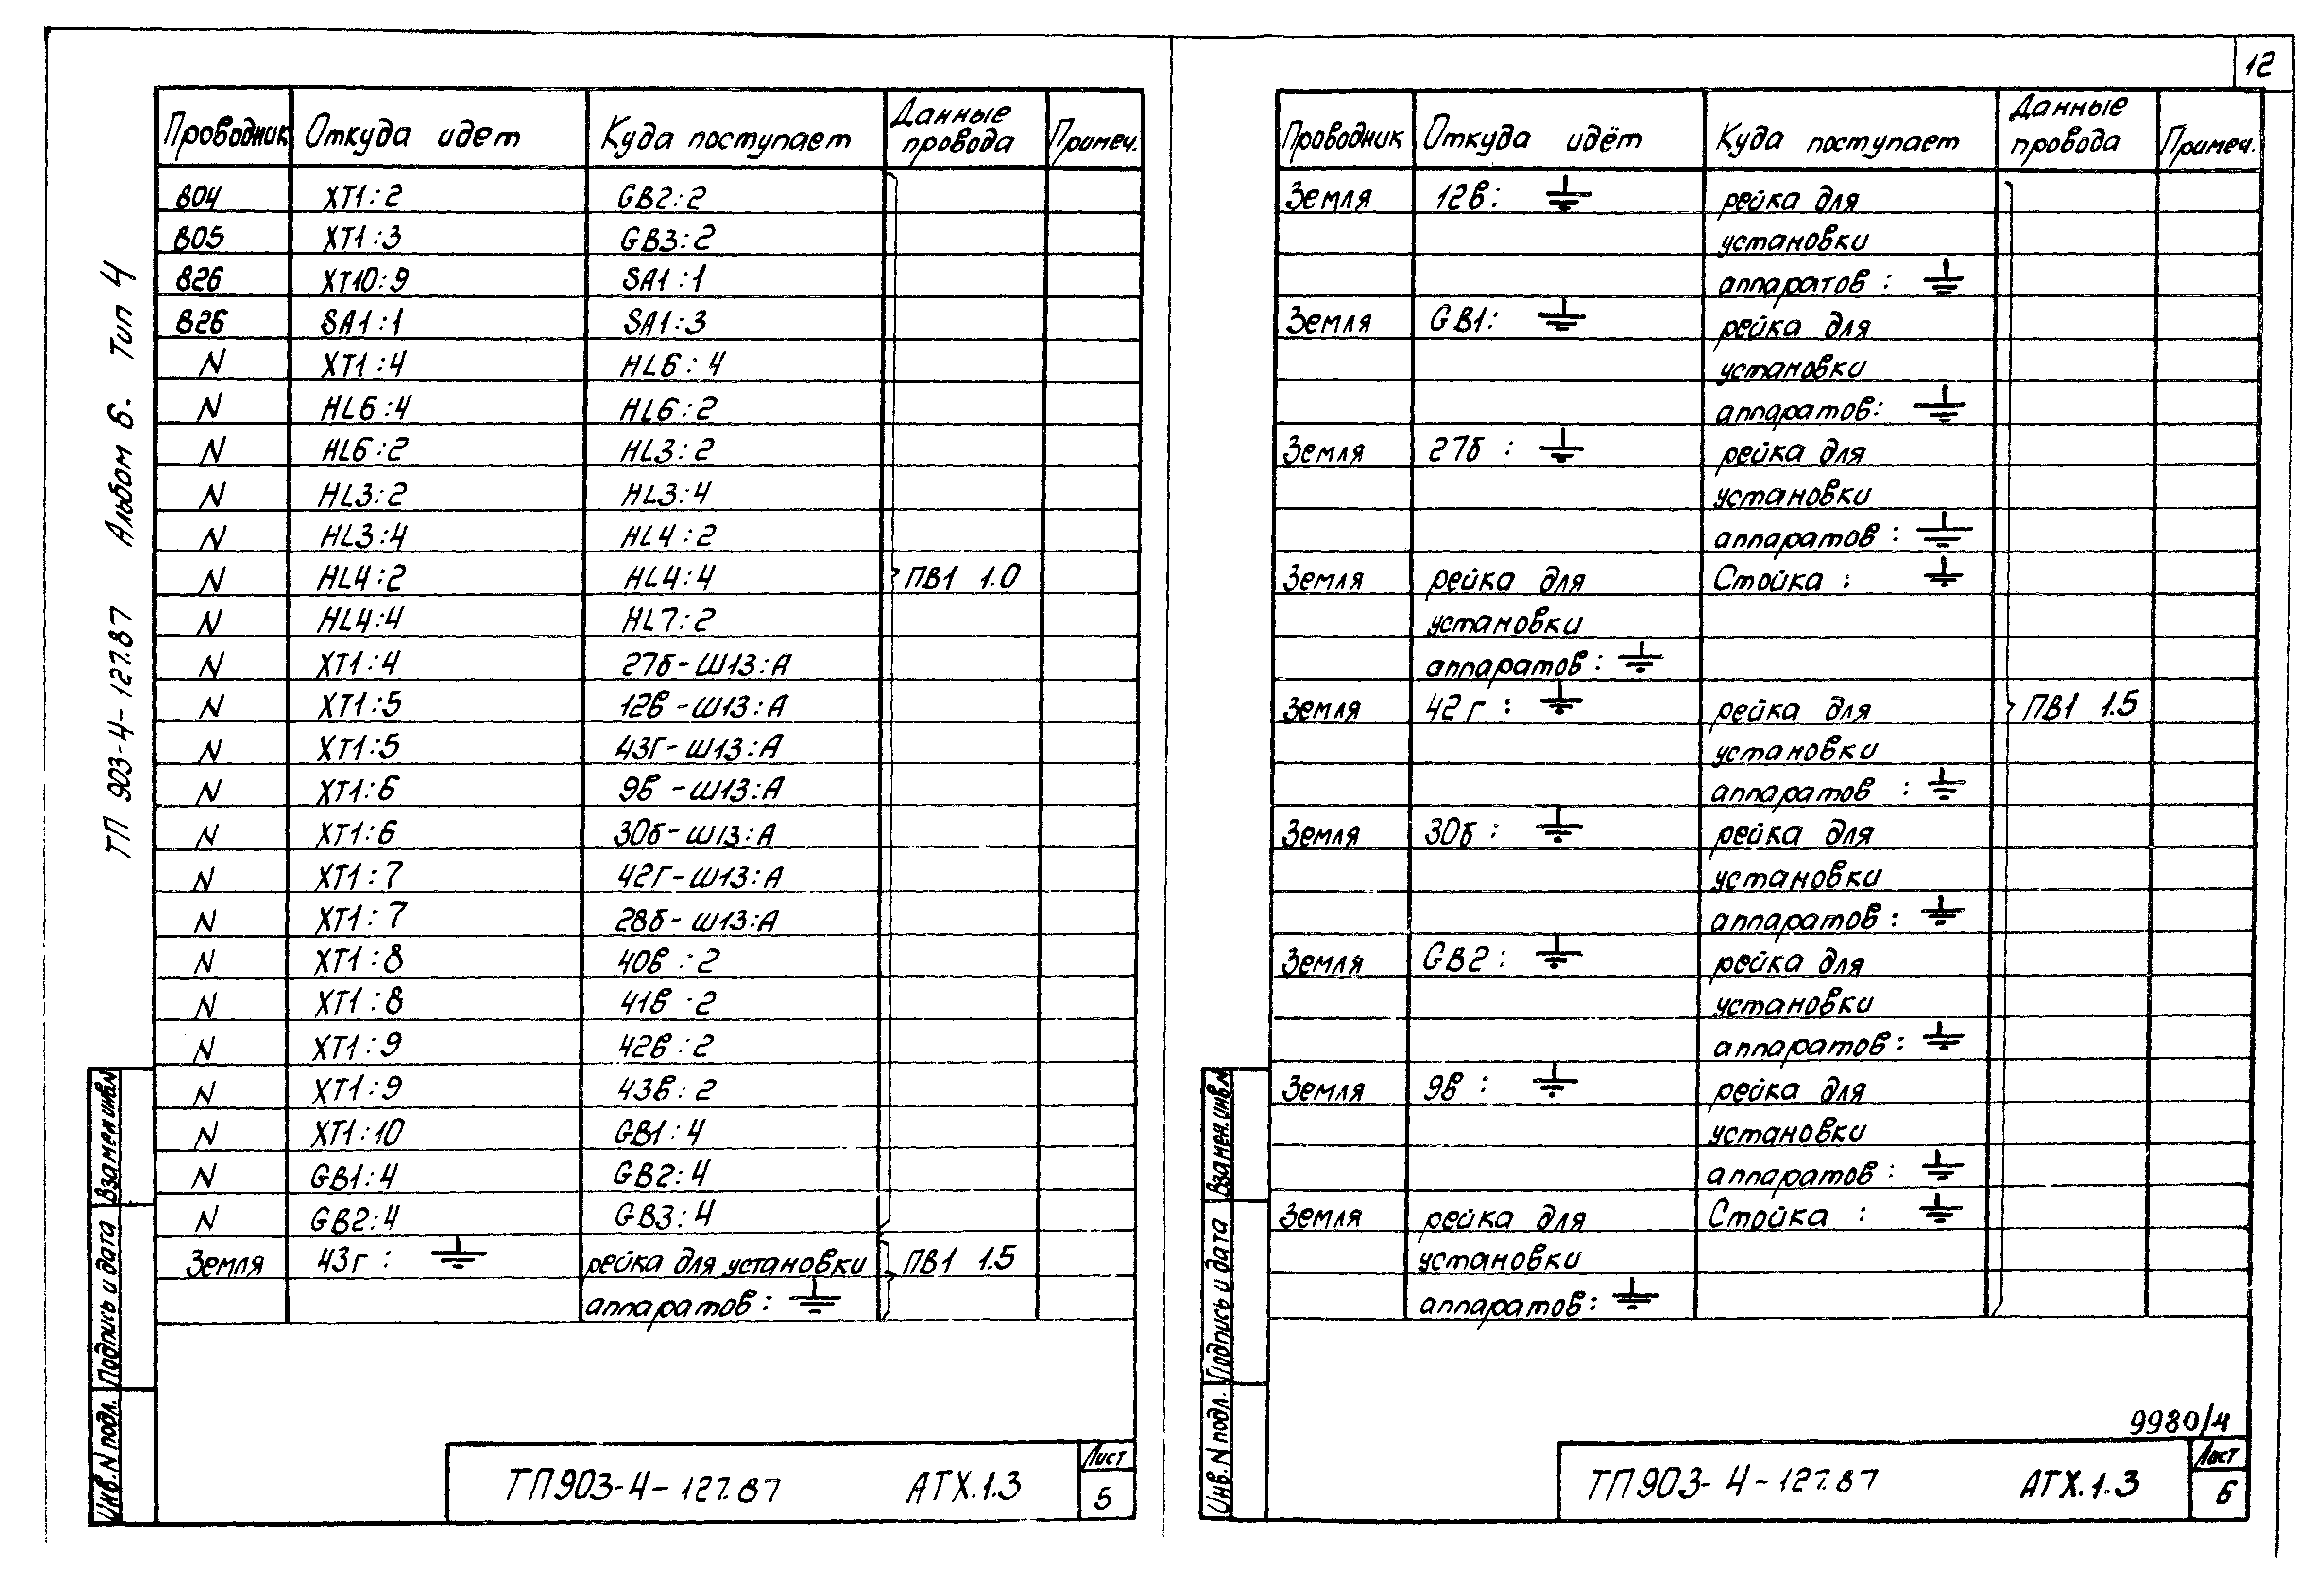 12
ТП 903-4-127.87 Альбом 6. Тип 4
Проводник Откуда идет Куда поступает Данные провода Примеч.
804 XT1:2 GB2:2
805 XT1:3 GB3:2
826 XT10:9 SA1:1
826 SA1:1 SA1:3
N XT1:4 HL6:4
N HL6:4 HL6:2
N HL6:2 HL3:2
N HL3:2 HL3:4
N HL3:4 HL4:2
N HL4:2 HL4:4 ПВ1 1.0
N HL4:4 HL7:2
N XT1:4 27б-Ш13:А
N XT1:5 12в-Ш13:А
N XT1:5 43г-Ш13:А
N XT1:6 9в-Ш13:А
N XT1:6 30б-Ш13:А
N XT1:7 42г-Ш13:А
N XT1:7 28б-Ш13:А
N XT1:8 40в:2
N XT1:8 41в:2
N XT1:9 42в:2
N XT1:9 43в:2
N XT1:10 GB1:4
N GB1:4 GB2:4
N GB2:4 GB3:4
Земля 43г: ⏚ рейка для установки ПВ1 1.5
аппаратов: ⏚
Инв.N подл. Подпись и дата Взамен инв.N
ТП903-4-127.87 АТХ.1.3
Лист
5
Проводник Откуда идёт Куда поступает Данные провода Примеч.
Земля 12в: ⏚ рейка для
установки
аппаратов: ⏚
Земля GB1: ⏚ рейка для
установки
аппаратов: ⏚
Земля 27б: ⏚ рейка для
установки
аппаратов: ⏚
Земля рейка для Стойка: ⏚
установки
аппаратов: ⏚
Земля 42г: ⏚ рейка для ПВ1 1.5
установки
аппаратов: ⏚
Земля 30б: ⏚ рейка для
установки
аппаратов: ⏚
Земля GB2: ⏚ рейка для
установки
аппаратов: ⏚
Земля 9в: ⏚ рейка для
установки
аппаратов: ⏚
Земля рейка для Стойка: ⏚
установки
аппаратов: ⏚
Инв.N подл. Подпись и дата Взамен.инв.N
9980/4
ТП903-4-127.87 АТХ.1.3
Лист
6